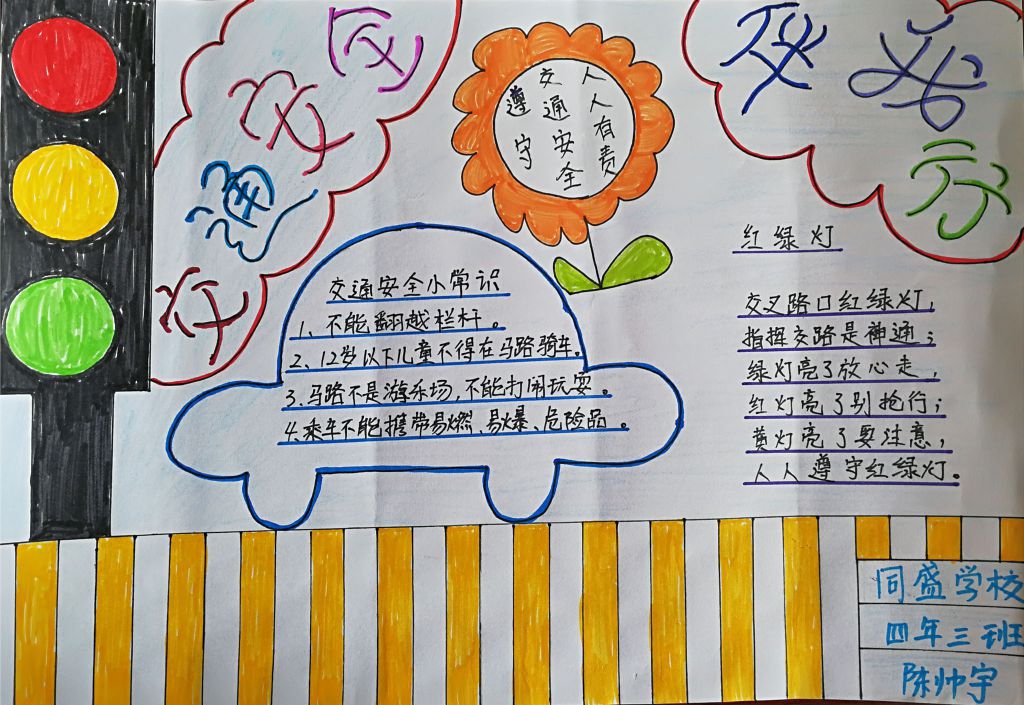 通
在
遵守
交通安全
人人有责
交通安全小常识
1、不能翻越栏杆。
2、12岁以下儿童不得在马路骑车。
3.马路不是游乐场,不能打闹玩耍。
4.乘车不能携带易燃、易爆、危险品。
红绿灯
交叉路口红绿灯,
指挥交路是神通;
绿灯亮了放心走,
红灯亮了别抢行;
黄灯亮了要注意,
人人遵守红绿灯。
同盛学校
四年三班
陈帅宇